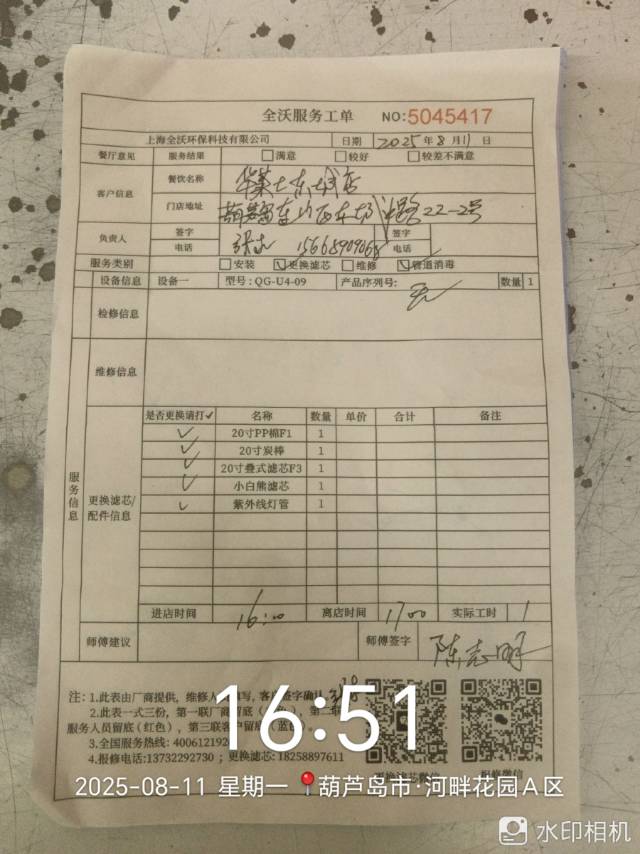 全沃服务工单 NO:5045417
上海全沃环保科技有限公司 日期 2025年8月11日
餐厅意见 服务结果 □满意 □较好 □较差不满意
客户信息 餐饮名称 华莱士东城店
门店地址 22-2号
负责人 签字 签字
电话 电话
服务类别 □安装 ☑更换滤芯 □维修 ☑管道消毒
设备信息 设备一 型号:QG-U4-09 产品序列号: 无 数量 1
检修信息
维修信息
服务信息
更换滤芯/配件信息
是否更换请打✓ 名称 数量 单价 合计 备注
✓ 20寸PP棉F1 1
✓ 20寸炭棒 1
✓ 20寸叠式滤芯F3 1
✓ 小白熊滤芯 1
✓ 紫外线灯管 1
进店时间 16:00 离店时间 17:00 实际工时 1
师傅建议 师傅签字 陈志明
注:1.此表由厂商提供,维修人 填写,客 签字确认
2.此表一式三份,第一联厂商留底( 色),第二
服务人员留底(红色),第三联客户留底(蓝色
3.全国服务热线:400612192
4.报修电话:13732292730 ;更换滤芯:18258897611
更换滤芯微信 报修微信
16:51
2025-08-11 星期一 葫芦岛市·河畔花园A区
水印相机